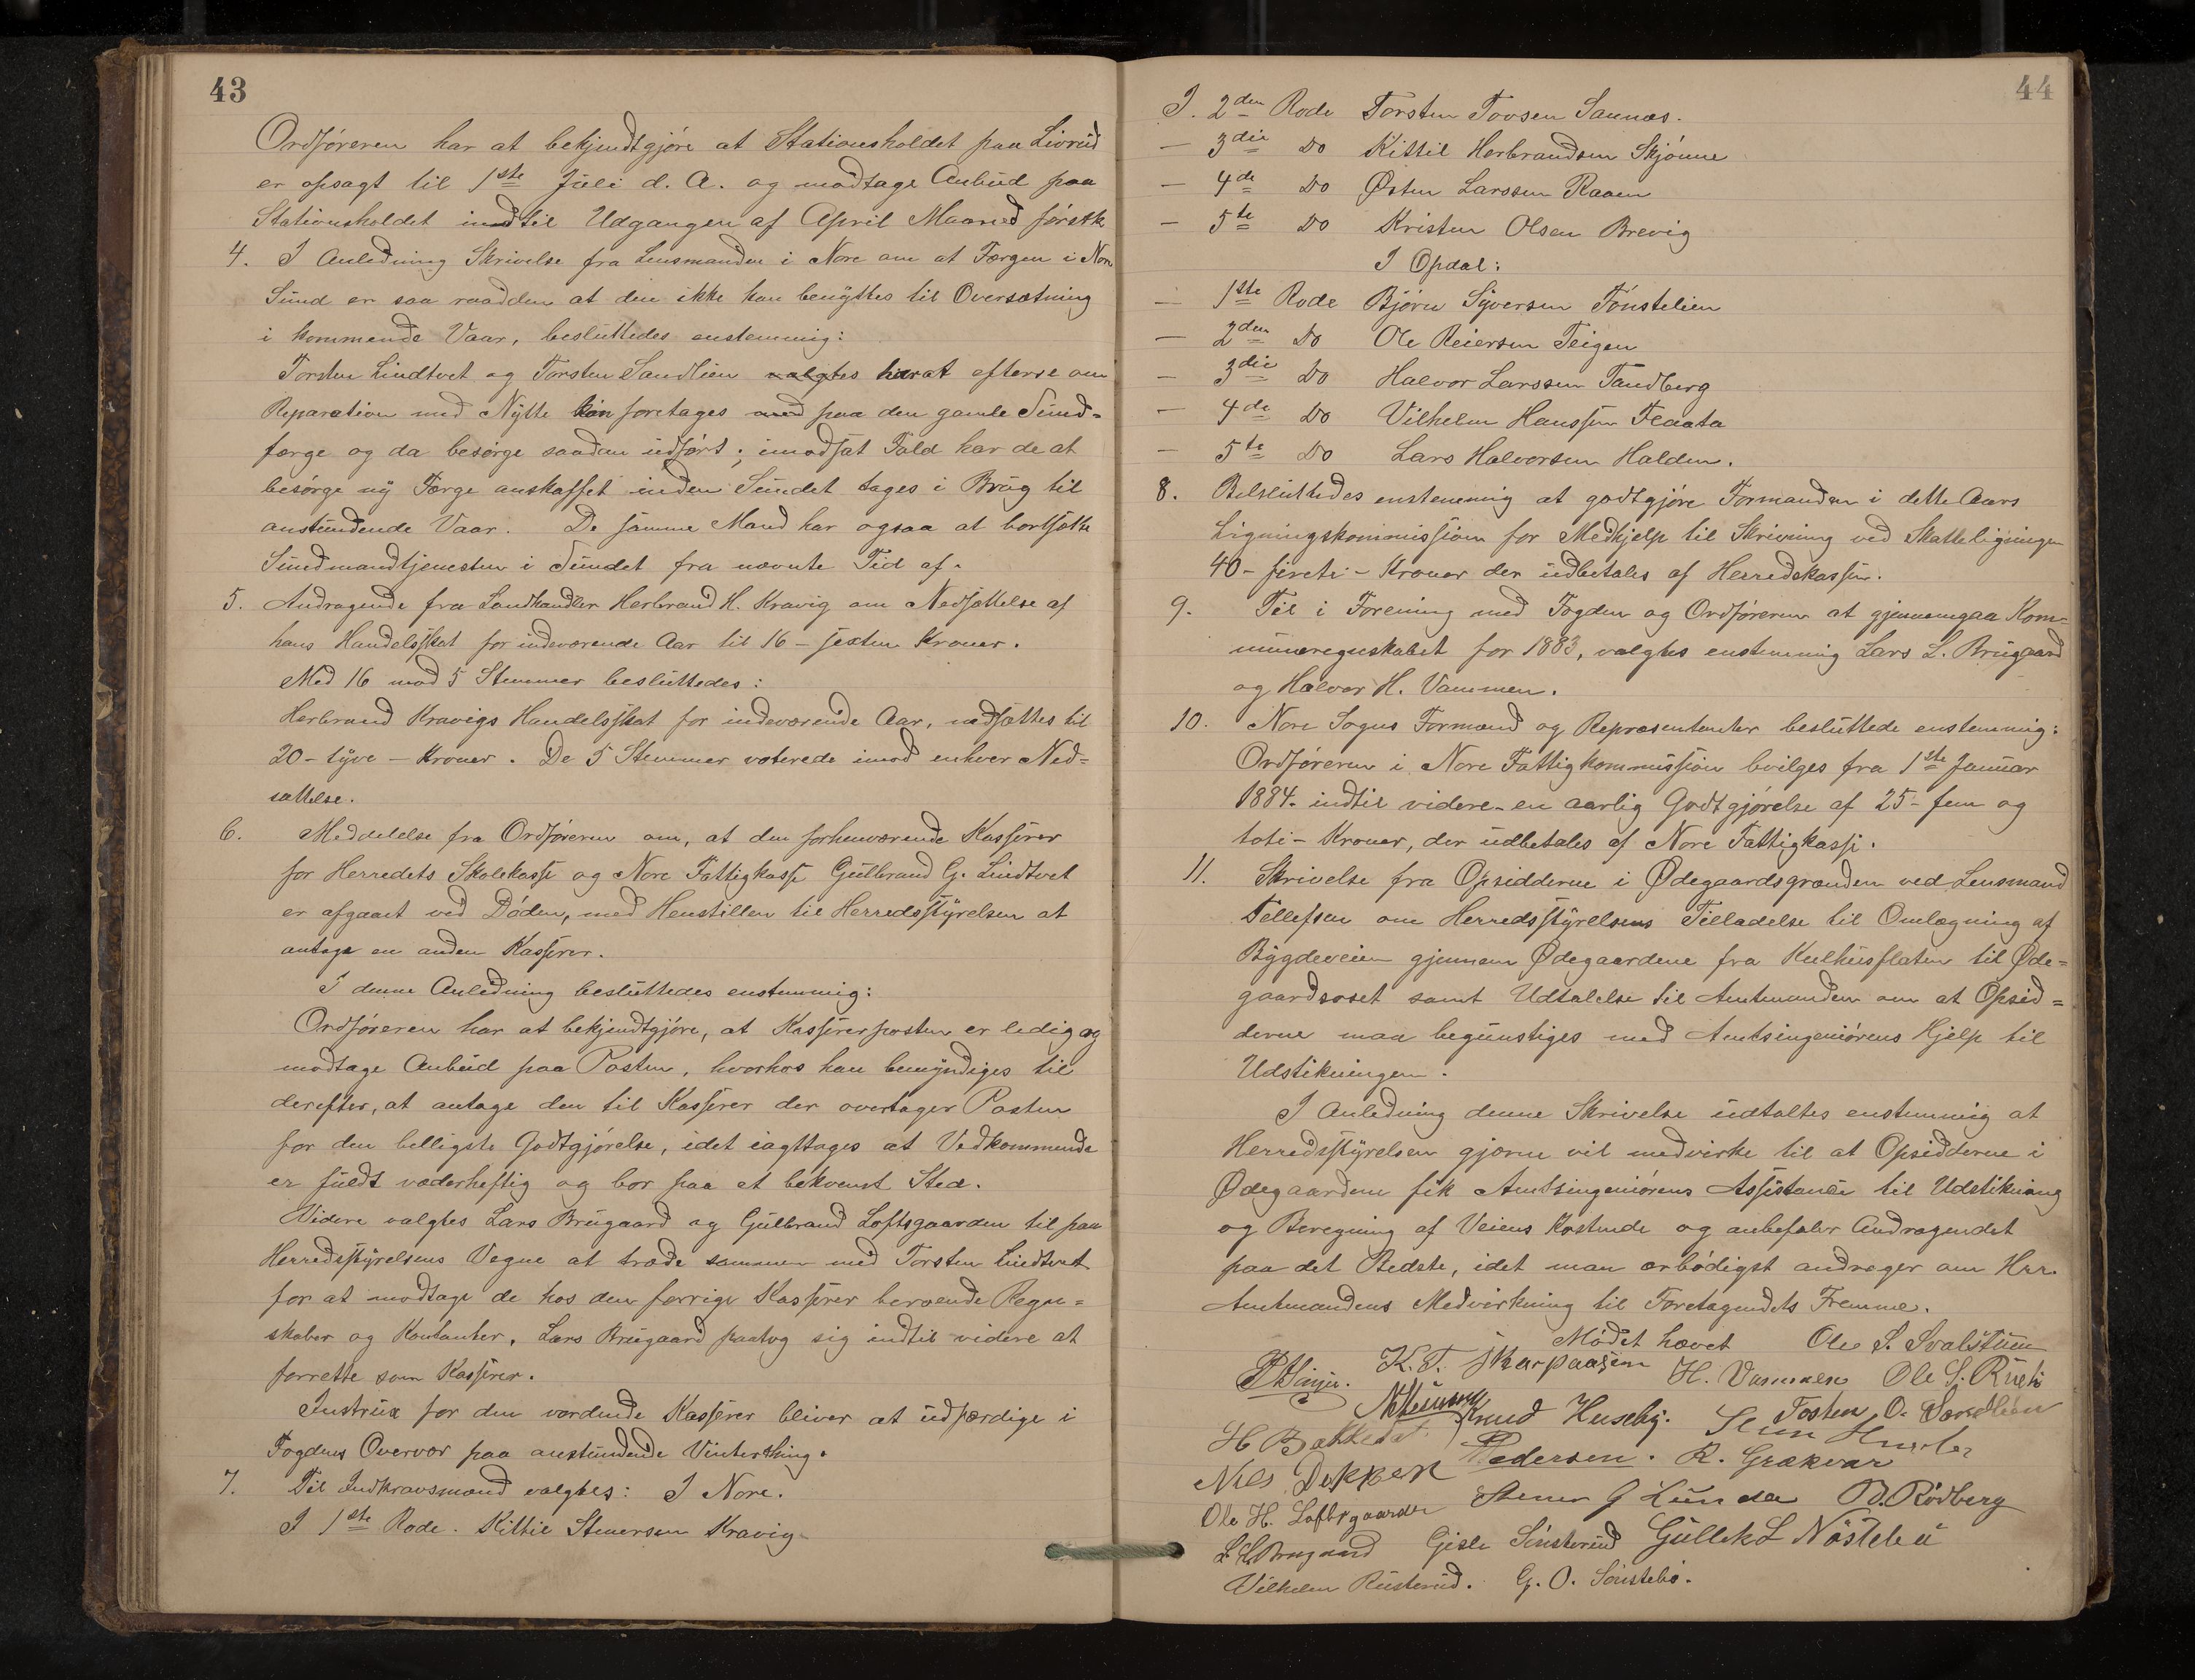 43
Ordføreren har at bekjendtgjøre at Stationsholdet paa Livrud
er opsagt til 1ste Juli d. A. og modtage Anbud paa
Stationsholdet indtil Udgangen af April Maaned førstk
4. I Anledning Skrivelse fra Lensmanden i Nore om at Færgen i Nore
Sund er saa raadden at den ikke kan benyttes til Oversætning
i kommende Vaar, besluttedes enstemmig:
Torsten Lindtvet og Torsten Sandlien valgtes har at efterse om
Reparation med Nytte kan foretages med paa den gamle Sund-
færge og da besørge saadan udført; imodsat Fald har de at
besørge ny Færge anskaffet inden Sundet tages i Brug til
anstundende Vaar. De samme Mænd har ogsaa at bortsætte
Sundmandtjenesten i Sundet fra nævnte Tid af.
5. Andragende fra Landhandler Herbrand H. Kravig om Nedsættelse af
hans Handelsskat for indeværende Aar til 16 - sexten Kroner.
Med 16 mod 5 Stemmer besluttedes:
Herbrand Kravigs Handelsskat for indeværende Aar, nedsættes til
20 - tyve - Kroner. De 5 Stemmer voterede imod enhver Ned-
sættelse.
6. Meddelelse fra Ordføreren om, at den forhenværende Kasserer
for Herredets Skolekasse og Nore Fattigkasse Gulbrand G. Lindtvet
er afgaaet ved Døden, med Henstillen til Herredsstyrelsen at
antage en anden Kasserer.
I denne Anledning besluttedes enstemmig:
Ordføreren har at bekjendtgjøre, at Kassererposten er ledig og
modtage Anbud paa Posten, hvorhos han bemyndiges til
derefter, at antage den til Kasserer der overtager Posten
for den billigste Godtgjørelse, idet iagttages at Vedkommende
er fuldt vederheftig og bor paa et bekvemt Sted.
Videre valgtes Lars Brugaard og Gulbrand Loftsgaarden til paa
Herredsstyrelsens Vegne at træde sammen med Torsten Lindtvet
for at modtage de hos den forrige Kasserer beroende Regn-
skaber og Kontanter. Lars Brugaard paatog sig indtil videre at
forrette som Kasserer.
Instrux for den vordende Kasserer bliver at udfærdige i
Fogdens Overvær paa anstundende Vinterthing.
7. Til Indkravsmænd valgtes: I Nore.
I 1ste Rode. Kittil Stenersen Kravig
44
I. 2den Rode Torsten Tovsen Sannes.
— 3die Do Kittil Herbrandsen Skjønne
— 4de Do Østen Larssen Raaen
— 5te Do Kristen Olsen Brevig
I Opdal:
— 1ste Rode Bjørn Syversen Tønstelien
— 2den Do Ole Reiersen Teigen
— 3die Do Halvor Larssen Tandberg
— 4de Do Vilhelm Hanssen Flaata
— 5te Do Lars Halvorsen Halden.
8. Belsluttedes enstemmig at godtgjøre Formanden i dette Aars
Ligningskommission for Medhjelp til Skrivning ved Skatteligningen
40 - fireti - Kroner der udbetales af Herredskassen.
9. Til i Forening med Fogden og Ordføreren at gjennemgaa Kom-
muneregnskabet for 1883, valgtes enstemmig Lars L. Brugaard
og Halvor H. Vammen.
10. Nore Sogns Formænd og Repræsentanter besluttede enstemmig:
Ordføreren i Nore Fattigkommission bvilges fra 1ste Januar
1884. indtil videre en aarlig Godtgjørelse af 25 - fem og
toti - Kroner, der udbetales af Nore Fattigkasse.
11. Skrivelse fra Opsidderne i Ødegaardsgrænden ved Lensmand
Tellefsen om Herredsstyrelsens Tilladelse til Omlægning af
Bygdeveien gjennem Ødegaardene fra Kulhusflaten til Øde-
gaardsoset samt Udtalelse til Amtmanden om at Opsid-
derne maa begunstiges med Amtsingeniørens Hjelp til
Udstikningen.
I Anledning denne Skrivelse udtaltes enstemmig at
Herredsstyrelsen gjerne vil medvirke til at Opsidderne i
Ødegaardene fik Amtsingeniørens Assistance til Udstikning
og Beregning af Veiens Kostende og anbefaler Andragendet
paa det Bedste, idet man ærbødigst andrager om Herr.
Amtmandens Medvirkning til Foretagendets Fremme.
Mødet hævet Ole S. Svalstuen
K. T. Skarpaasen H. Vammen Ole S.
Knud Huseby. Tosten O. Sandlien
H Bakketet Pedersen. R. Grækvar
Nils Dekken
Ole H. Loftsgaarden Stener G Lunde B. Rødberg
L L Brugaard Gisle Sønsterud Gullek L Nöstebü
Vilhelm Rusterud. G. O. Sønstebø.